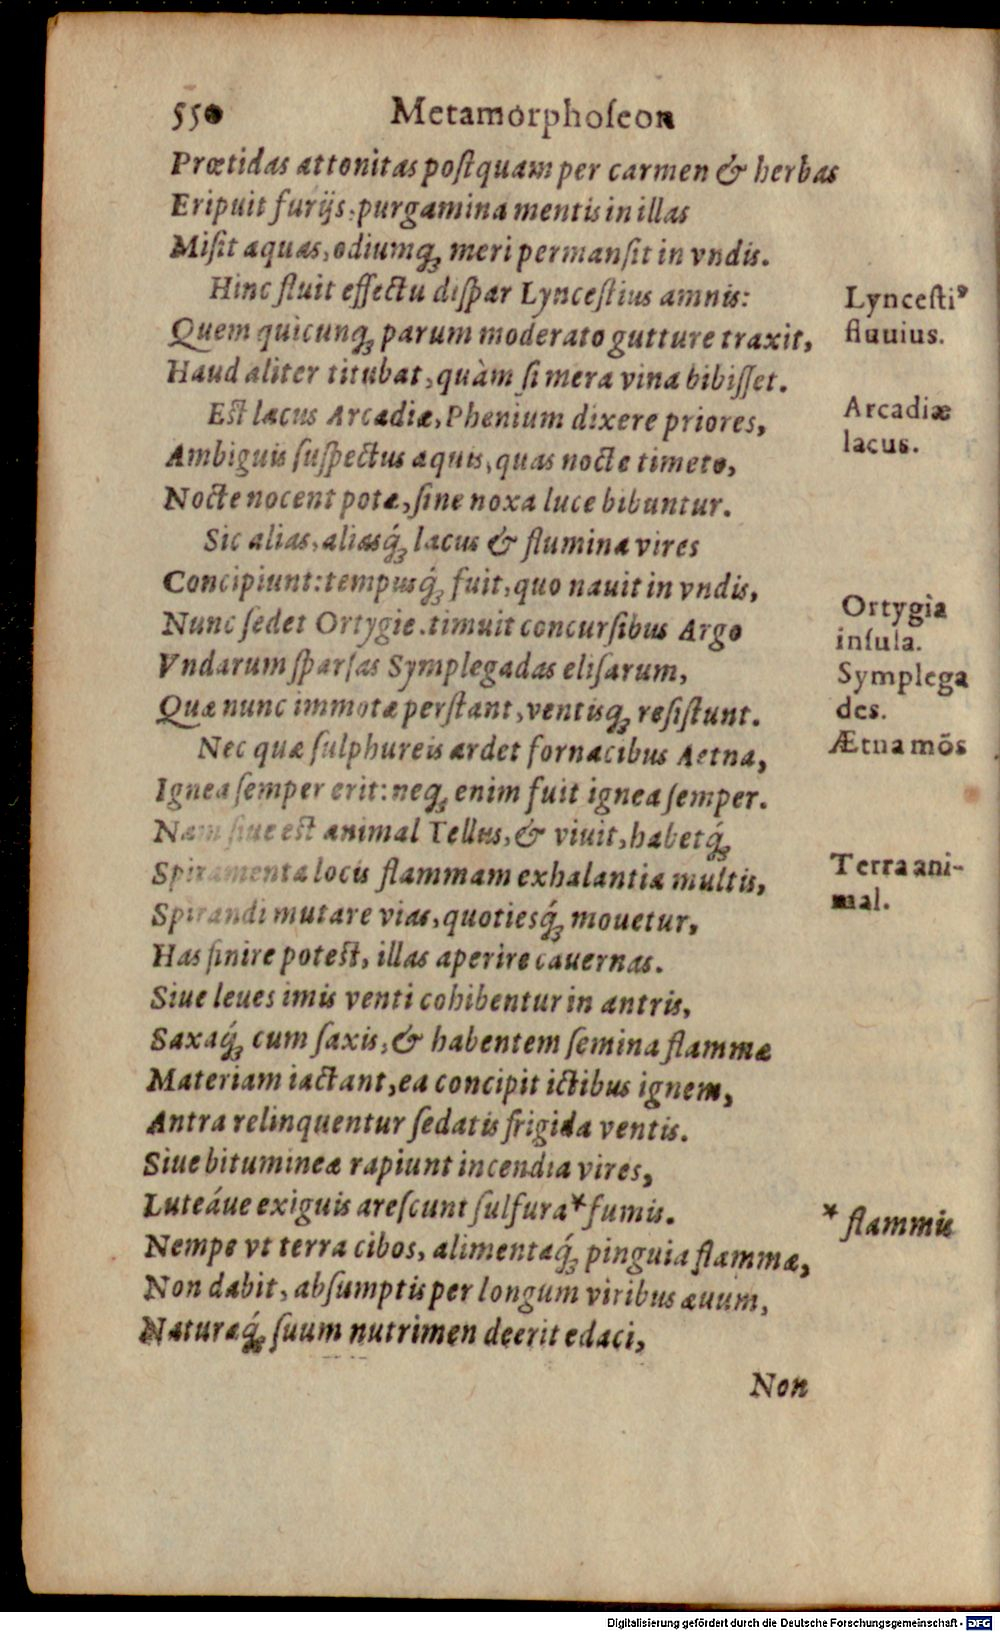 550 Metamorphoſeon
Prœtidas attonitas poſtquam per carmen & herbas
Eripuit furijs, purgamina mentis in illas
Miſit aquas, odiumq́ꝫ meri permanſit in vndis.
Hinc fluit effectu diſpar Lynceſtius amnis:
Lynceſtiꝰ
Quem quicunqꝫ parum moderato gutture traxit,
fluuius.
Haud aliter titubat, quàm ſi mera vina bibiſſet.
Est lacus Arcadiæ, Phenium dixere priores,
Arcadiæ
Ambiguis ſuſpectus aquis, quas nocte timeto,
lacus.
Nocte nocent potæ, ſine noxa luce bibuntur.
Sic alias, aliasq́ꝫ lacus & flumina vires
Concipiunt: tempusq́ꝫ fuit, quo nauit in vndis,
Nunc ſedet Ortygie. timuit concurſibus Argo
Ortygia
inſula.
Vndarum ſparſas Symplegadas eliſarum,
Symplega
Quæ nunc immotæ perſtant, ventisqꝫ reſiſtunt.
des.
Nec quæ ſulphureis ardet fornacibus Aetna,
Ætna mõs
Ignea ſemper erit: neqꝫ enim fuit ignea ſemper.
Nam ſiue est animal Tellus, & viuit, habetq́ꝫ
Spiramenta locis flammam exhalantia multis,
Terra ani-
Spirandi mutare vias, quotiesq́ꝫ mouetur,
mal.
Has finire potest, illas aperire cauernas.
Siue leues imis venti cohibentur in antris,
Saxaq́ꝫ cum ſaxis, & habentem ſemina flammæ
Materiam iactant, ea concipit ictibus ignem,
Antra relinquentur ſedatis frigida ventis.
Siue bitumineæ rapiunt incendia vires,
Luteáue exiguis areſcunt ſulfura * fumis.
* flammis
Nempe vt terra cibos, alimentaq́ꝫ pinguia flammæ,
Non dabit, abſumptis per longum viribus æuum,
Naturæq́ꝫ ſuum nutrimen deerit edaci,
Non
Digitalisierung gefördert durch die Deutsche Forschungsgemeinschaft - DFG